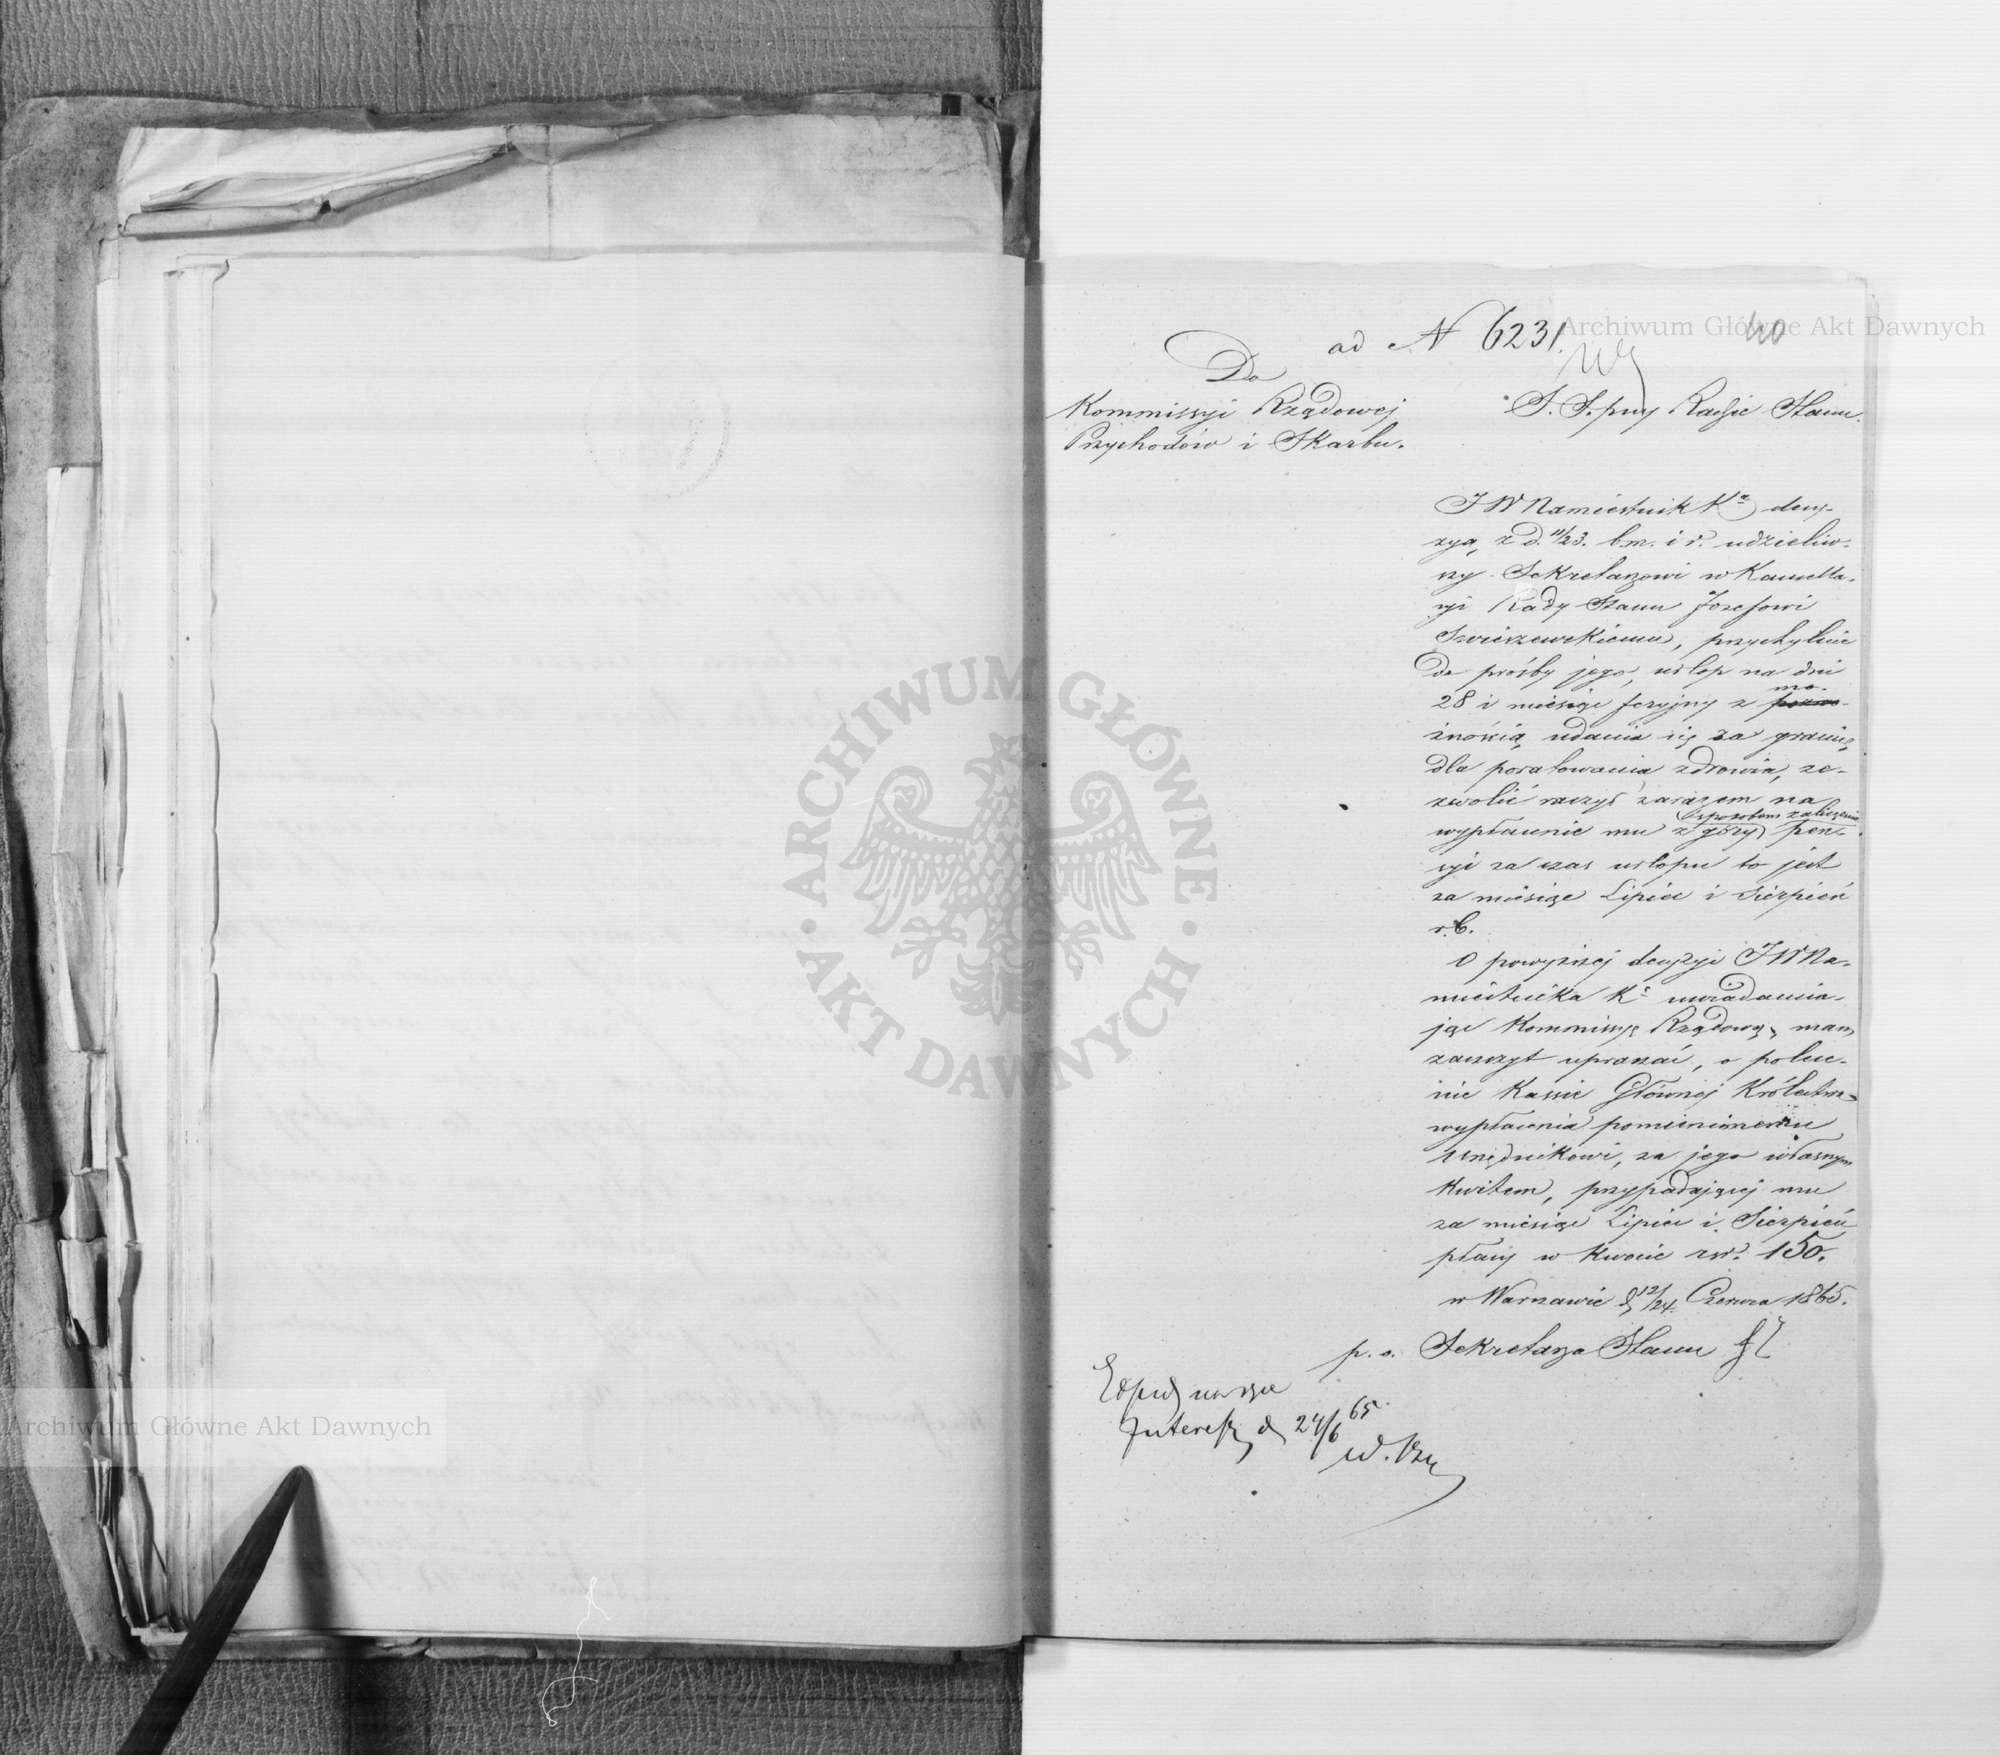 ad N 6231.
40
Do
Kommissyi Rządowej
Przychodów i Skarbu.
S. S. przy Radzie Stanu.
JW Namiestnik Kᵃ decy-
zyą z d. 11/23. b.m. i r. udzieliw-
szy Sekretarzowi w Kancella-
ryi Rady Stanu Józefowi
Świeszewskiemu, przychylnie
do prośby jego, urlop na dni
28 i miesiąc feryjny z mo-
żnością udania się za granicę
dla poratowania zdrowia, ze-
zwolić raczył zarazem na
wypłacenie mu z góry sposobem zaliczenia pen-
syi za czas urlopu to jest
za miesiące Lipiec i Sierpień
r.b.
O powyższej decyzyi JW Na-
miestnika Kᵃ uwiadamia-
jąc Kommissyę Rządową, mam
zaszczyt upraszać, o polece-
nie Kassie Głównej Królestwa
wypłacenia pomienionemu
urzędnikowi, za jego własnym
kwitem, przypadającej mu
za miesiące Lipiec i Sierpień
płacy w kwocie rsr. 150.
w Warszawie d 12/24. Czerwca 1865.
p. o. Sekretarza Stanu
Interess d 24/6 65
Archiwum Główne Akt Dawnych
ARCHIWUM GŁÓWNE
AKT DAWNYCH
Archiwum Główne Akt Dawnych